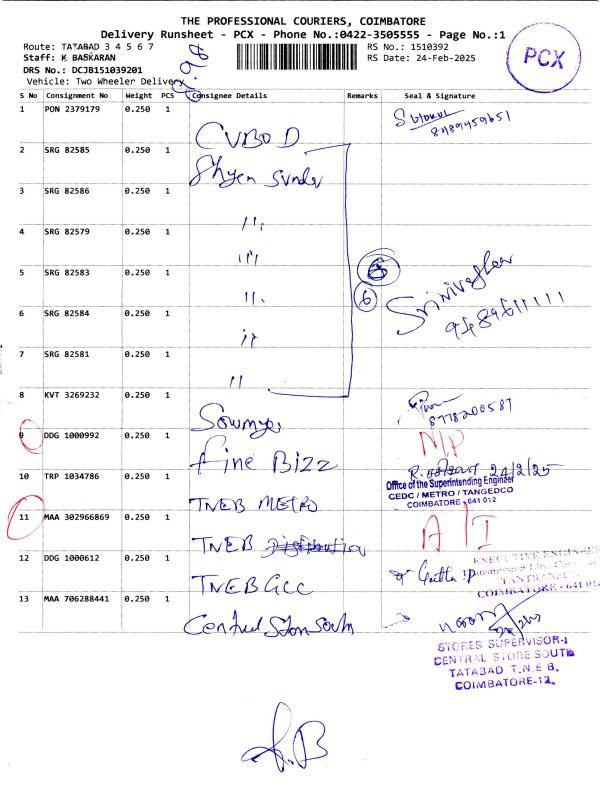 THE PROFESSIONAL COURIERS, COIMBATORE
Delivery Runsheet - PCX - Phone No.:0422-3505555 - Page No.:1
Route: TATABAD 3 4 5 6 7
RS No.: 1510392
Staff: K BASKARAN
RS Date: 24-Feb-2025
DRS No.: DCJB151039201
Vehicle: Two Wheeler Delivery
PCX
S No Consignment No Weight PCS Consignee Details Remarks Seal & Signature
1 PON 2379179 0.250 1 CVBO D
8489459651
2 SRG 82585 0.250 1 Shyam Sundar
3 SRG 82586 0.250 1 ,,,
4 SRG 82579 0.250 1 ,,,
5 SRG 82583 0.250 1 ,,
6
6 SRG 82584 0.250 1 ,,
7 SRG 82581 0.250 1 ,,
8 KVT 3269232 0.250 1 Sowmya
8778200587
9 DDG 1000992 0.250 1 fine Bizz
N/P
10 TRP 1034786 0.250 1 TNEB METRO
24/2/25
Office of the Superintending Engineer
CEDC / METRO / TANGEDCO
COIMBATORE - 641 012
11 MAA 302966869 0.250 1 TNEB Distribution
12 DDG 1000612 0.250 1 TNEB GCC
EXECUTIVE ENGINEER
COIMBATORE - 641 01
13 MAA 706288441 0.250 1 Central Store South
STORES SUPERVISOR-I
CENTRAL STORE SOUTH
TATABAD T.N.E B.
COIMBATORE-12.